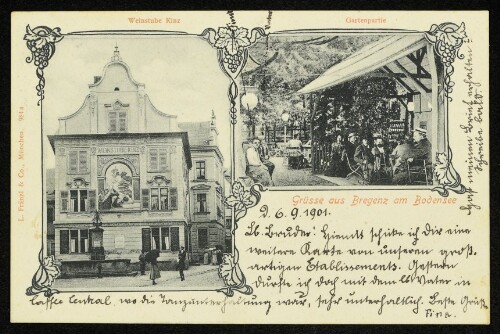 Weinstube Kinz
Gartenpartie
L. Fränzl & Co., München.
WEINSTUBE KINZ
Grüsse aus Bregenz am Bodensee
D. 6. 9. 1901.
Lb. Bruder! Hiemit schicke ich Dir eine
weitere Karte von unseren groß-
artigen Etablissements. Gestern
durfte ich doch mit dem lb. Vater in
Caffee Central, wo die Tanzunterhaltung war, sehr unterhaltlich. Beste Grüße
Fina.
Hast meinen Brief erhalten?
Schreibe bald.